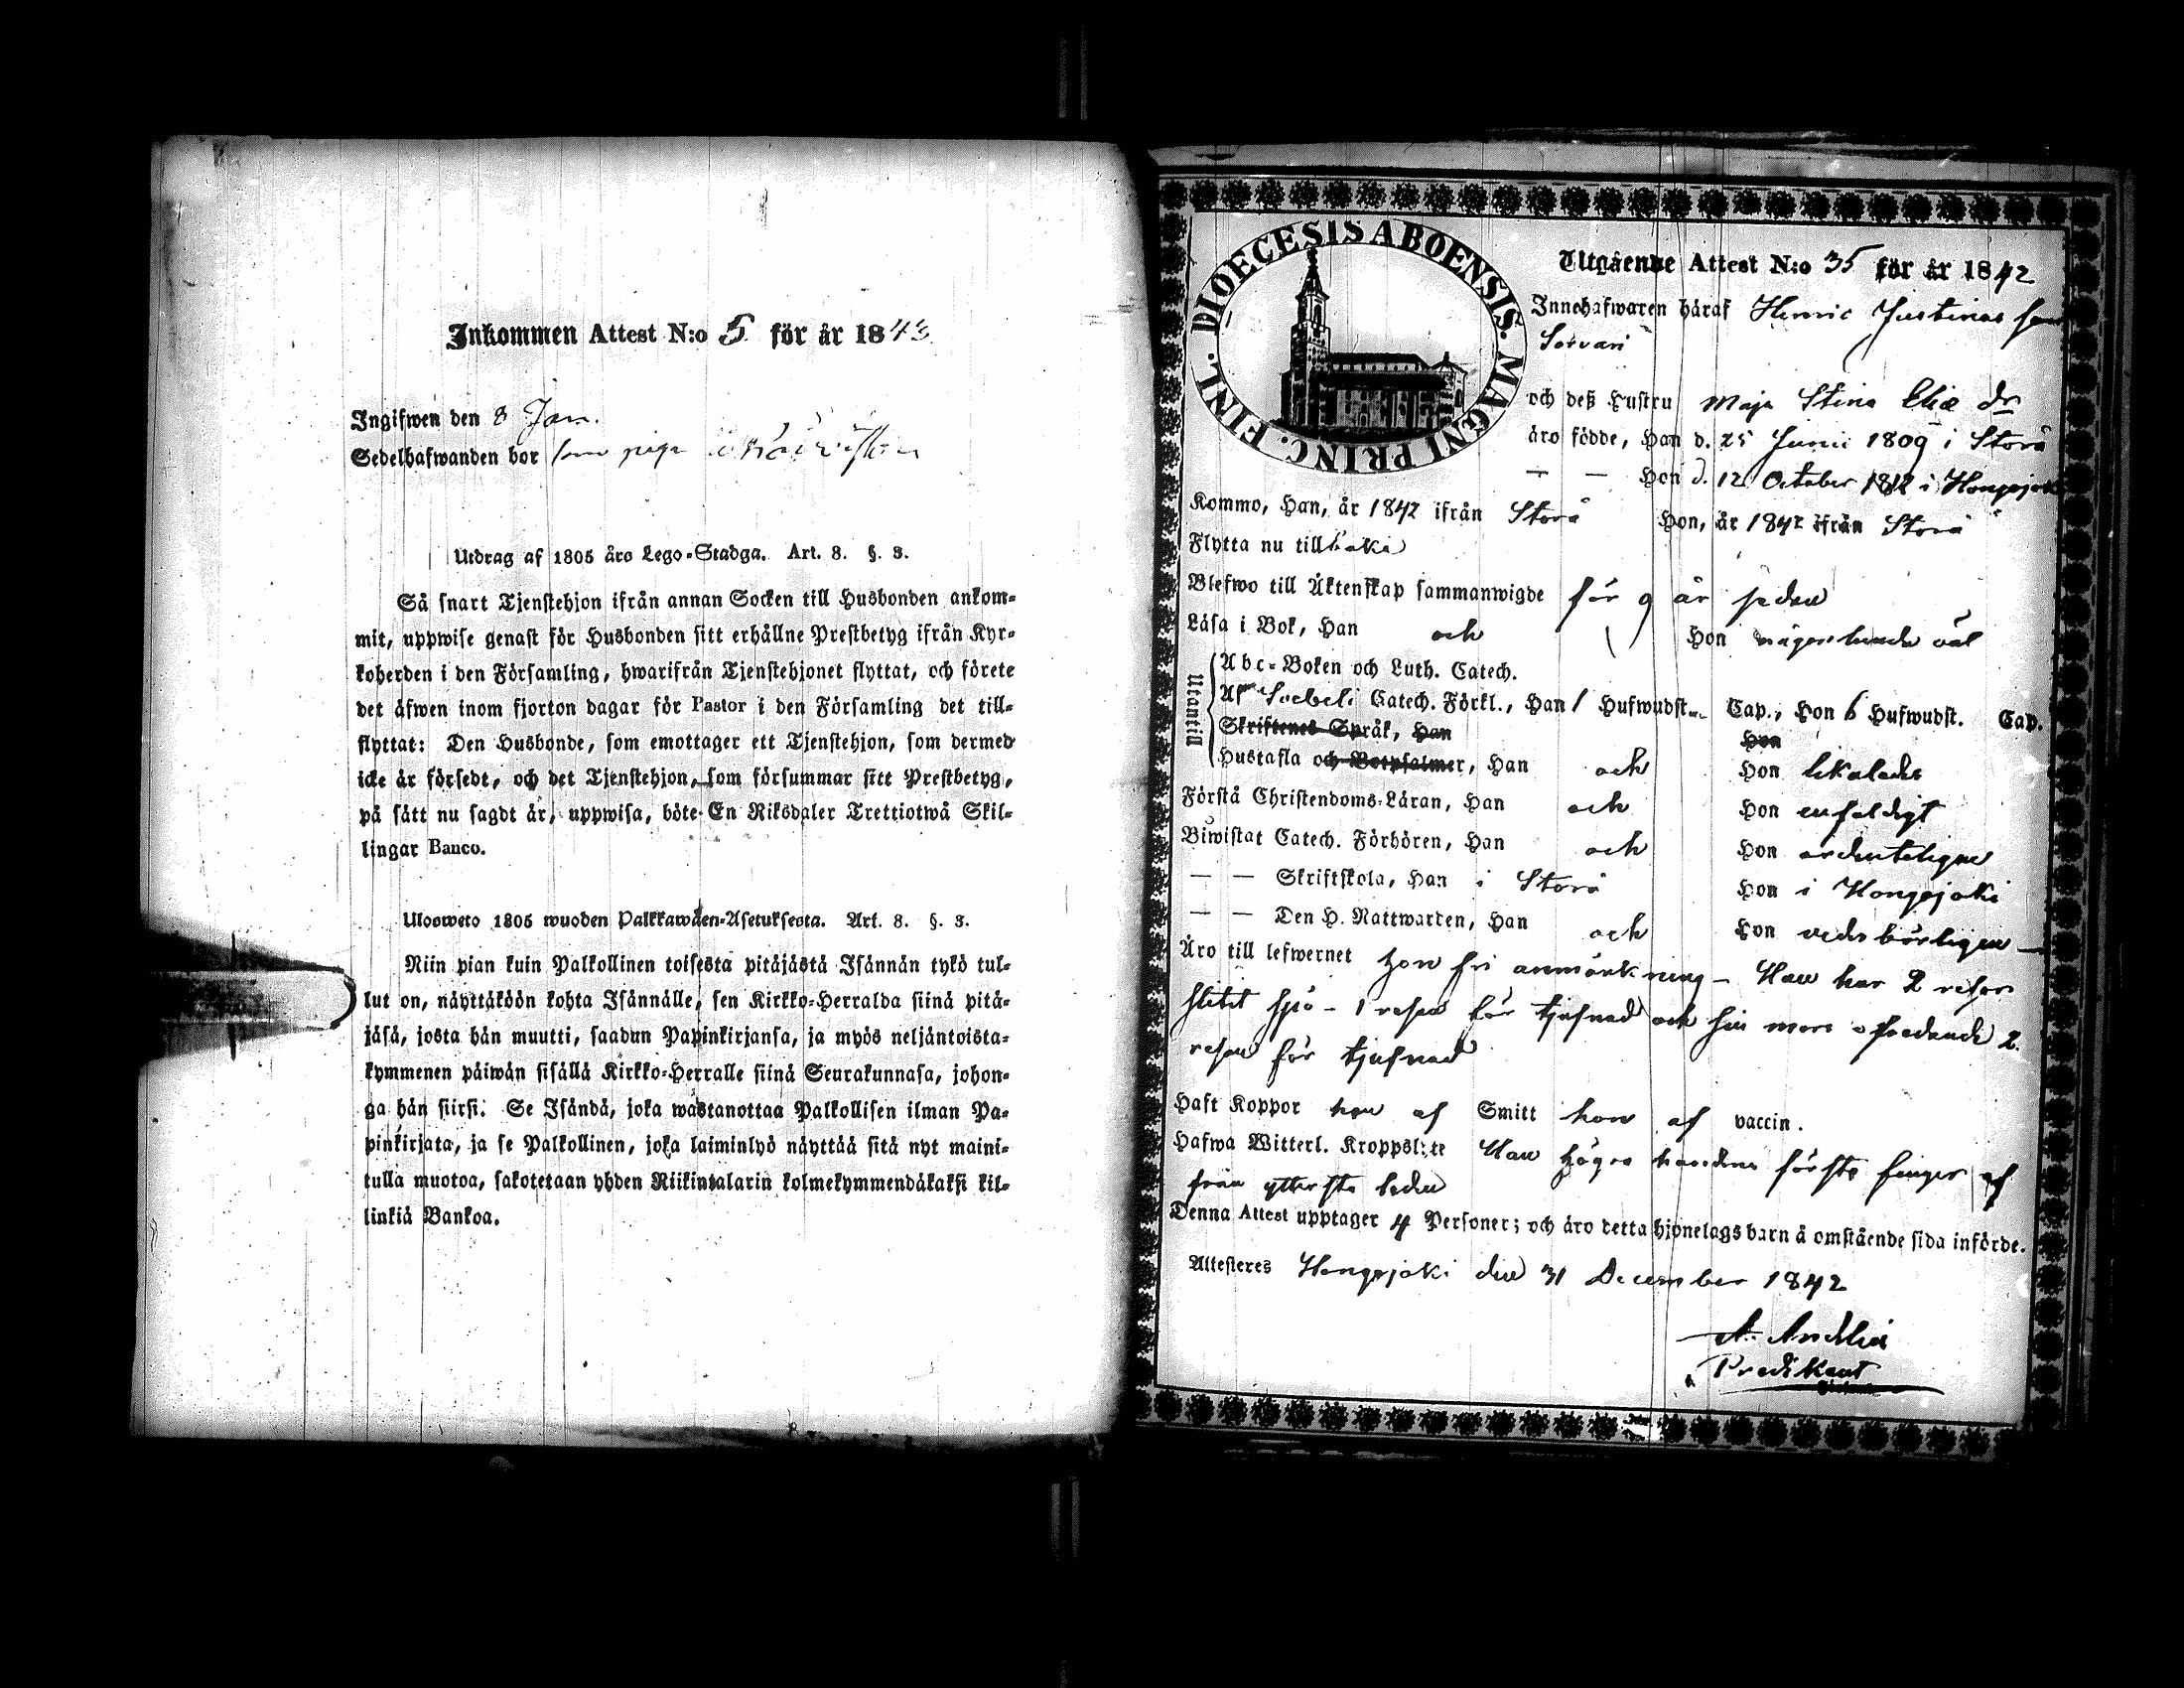 Inkommen Attest N:o 5 för år 1843
Ingifwen den 8 Jan.
Sedelhafwanden bor som piga
Utdrag af 1805 års Lego-Stadga. Art. 8. §. 3.
Så snart Tjenstehjon ifrån annan Socken till Husbonden ankom-
mit, uppwise genast för Husbonden sitt erhållne Prestbetyg ifrån Kyr-
koherden i den Församling, hwarifrån Tjenstehjonet flyttat, och förete
det äfwen inom fjorton dagar för Pastor i den Församling det till-
flyttat: Den Husbonde, som emottager ett Tjenstehjon, som dermed
icke är försedt, och det Tjenstehjon, som försummar sitt Prestbetyg,
på sätt nu sagdt är, uppwisa, böte En Riksdaler Trettiotwå Skil-
lingar Banco.
Ulosweto 1805 wuoden Palkkawäen-Asetuksesta. Art. 8. §. 3.
Niin pian kuin Palkollinen toisesta pitäjästä Isännän tykö tul-
lut on, näyttäköön kohta Isännälle, sen Kirkko-Herralda siinä pitä-
jäsä, josta hän muutti, saadun Papinkirjansa, ja myös neljäntoista-
kymmenen päiwän sisällä Kirkko-Herralle siinä Seurakunnasa, johon-
ga hän siirsi. Se Isändä, joka wastanottaa Palkollisen ilman Pa-
pinkirjata, ja se Palkollinen, joka laiminlyö näyttää sitä nyt maini-
tulla muotoa, sakotetaan yhden Riikintalarin kolmekymmendäkaksi kil-
linkiä Bankoa.
DIOECESIS ABOENSIS. MAGNI PRINC. FINL.
Utgående Attest N:o 35 för år 1842
Innehafwaren häraf Henric Justinas son
Sorvari
och deß Hustru Maja Stina Eliæ dr
äro födde, Han d. 25 Junii 1809 i Storå
— — Hon d. 12 October 1812 i Hongojoki
Kommo, Han, år 1842 ifrån Storå Hon, år 1842 ifrån Storå
Flytta nu tillbaka
Blefwo till Äktenskap sammanwigde för 9 år sedan
Läsa i Bok, Han och Hon någorlunda väl
Utantill
Abc-Boken och Luth. Catech.
Af Svebeli Catech. Förkl., Han 1 Hufwudst. Cap., Hon 6 Hufwudst. Cap.
Skriftenes Språk, Han Hon
Hustafla och Botpsalmer, Han och Hon likaledes
Förstå Christendoms-Läran, Han och Hon enfaldigt
Biwistat Catech. Förhören, Han och Hon ordenteligen
— — Skriftskola, Han i Storå Hon i Hongojoki
— — Den H. Nattwarden, Han och Hon vederbörligen —
Äro till lefwernet hon fri anmärkning – Han har 2 resor
slitit spö – 1 resa för tjufnad och för 2.
resan för tjufnad
Haft Koppor han af Smitt hon af vaccin.
Hafwa Witterl. Kroppslyte Han högra handens första finger af
från yttersta leden
Denna Attest upptager 4 Personer; och äro detta hjonelags barn å omstående sida införde.
Attesteres Hongojoki den 31 December 1842
A. Andelin
Predikant